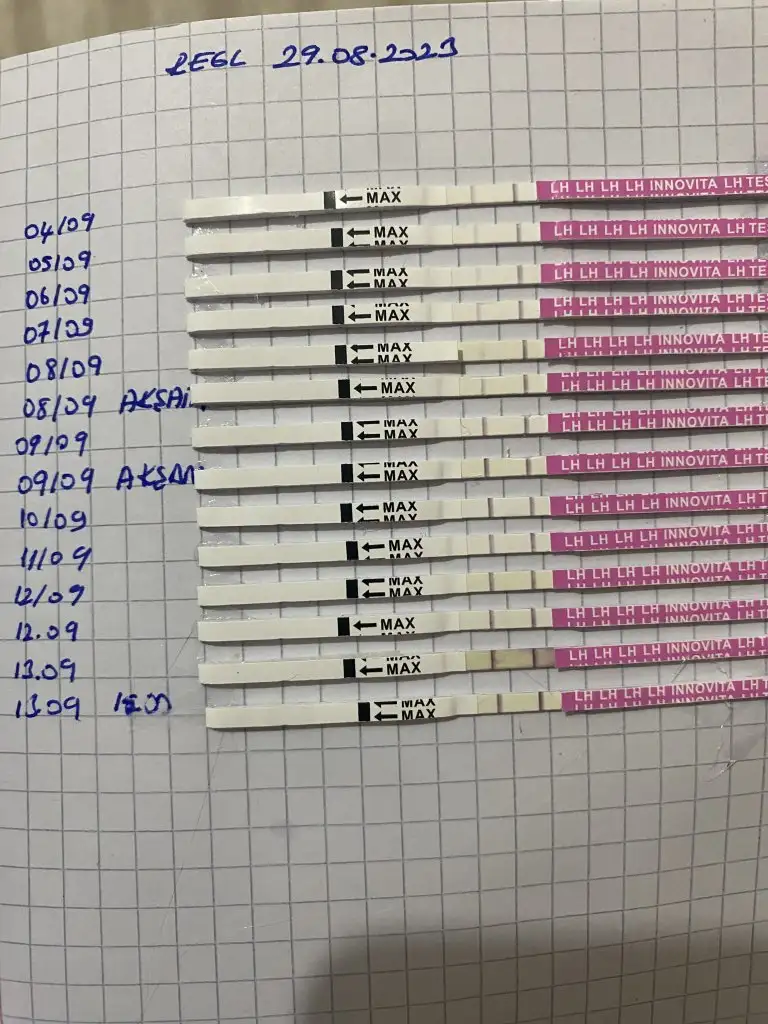 REGL 29.08.2023
04/09 MAX LH LH LH LH INNOVITA LH TES
05/09 MAX LH LH LH LH INNOVITA LH TE
06/09 MAX LH LH LH LH INNOVITA LH TE
07/09 MAX LH LH LH LH INNOVITA LH TE
08/09 MAX MAX LH LH LH LH INNOVITA LH TE
08/09 AKŞAM MAX LH LH LH LH INNOVITA LH TE
09/09 MAX MAX LH LH LH LH INNOVITA LH TE
09/09 AKŞAM MAX LH LH LH LH INNOVITA LH TE
10/09 MAX LH LH LH LH INNOVITA LH T
11/09 MAX LH LH LH LH INNOVITA LH T
12/09 MAX LH LH LH LH INNOVITA LH T
12.09 MAX LH LH LH LH INNOVITA LH T
13.09 MAX LH LH LH LH INNOVITA LH T
13.09 MAX LH LH LH LH INNOVITA LH T